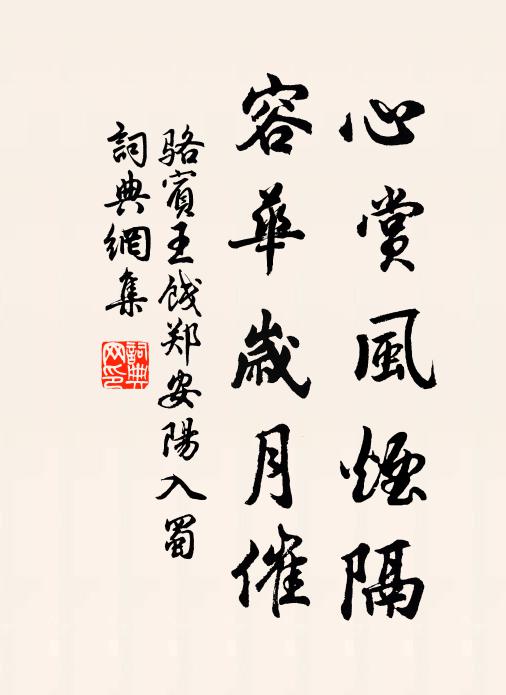 心賞風煙隔
容華歲月催
骆賓王餞郑安陽入蜀
詞典網集
詞典
网印